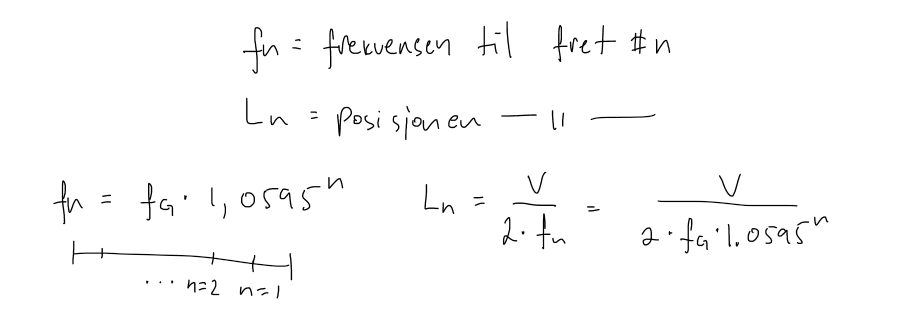 fn = frekvensen til fret #n
Ln = posisjonen — 11 —
fn = fG · 1,0595^n
Ln = V / (2 · fn) = V / (2 · fG · 1.0595^n)
... n=2 n=1